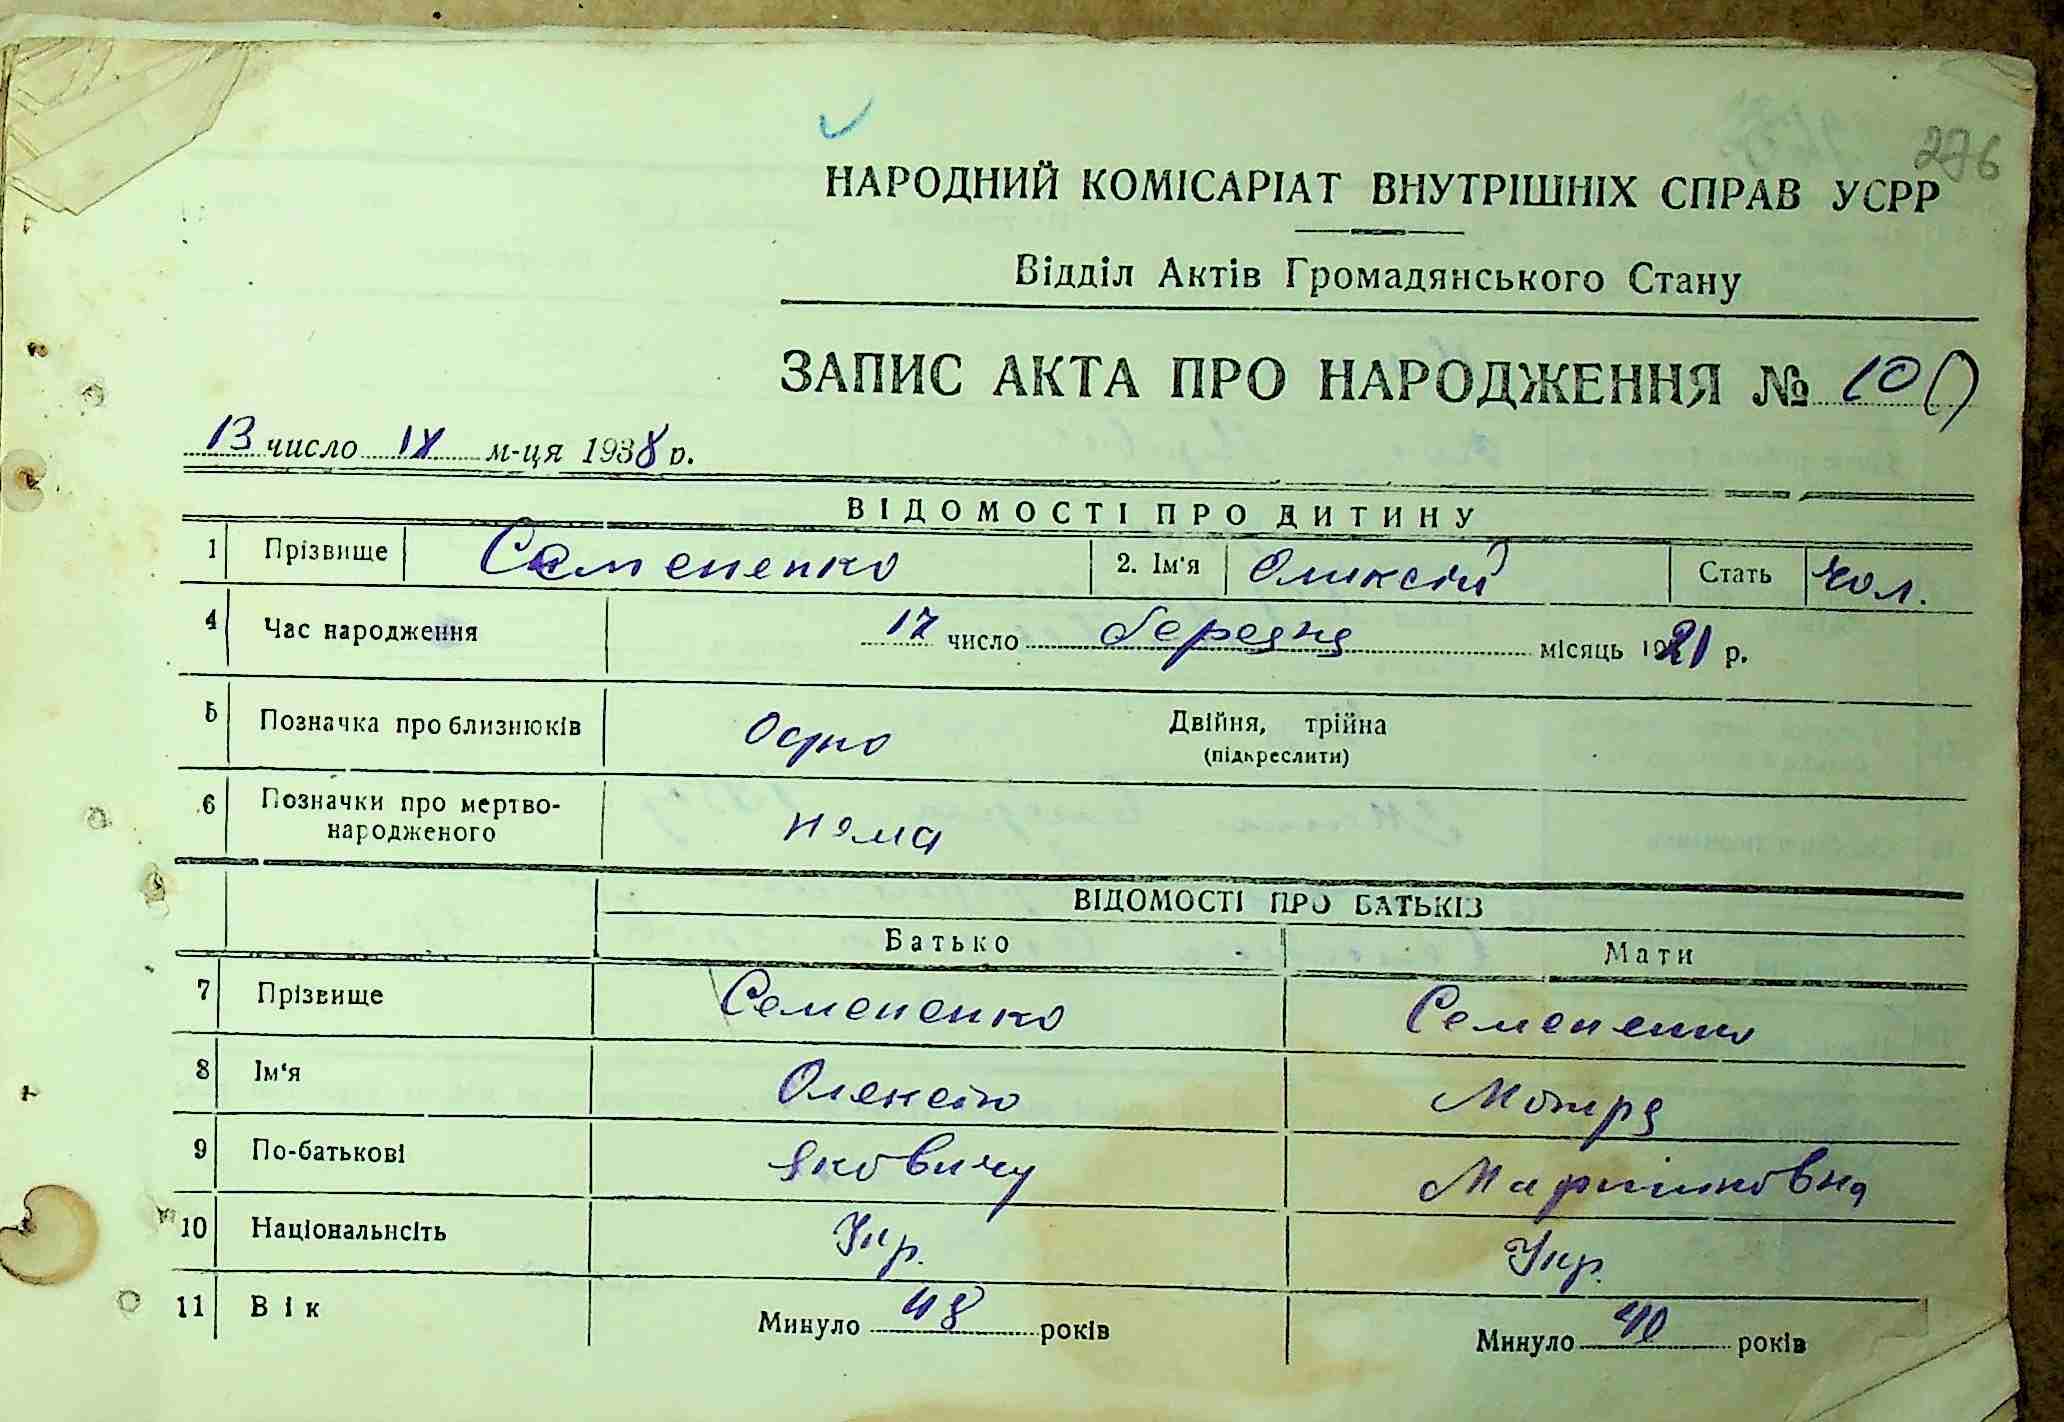 276
НАРОДНИЙ КОМІСАРІАТ ВНУТРІШНІХ СПРАВ УСРР
Відділ Актів Громадянського Стану
ЗАПИС АКТА ПРО НАРОДЖЕННЯ № 100
13 число IX м-ця 1938 р.
ВІДОМОСТІ ПРО ДИТИНУ
1 Прізвище Семененко 2. Ім'я Оликсій Стать чол.
4 Час народження 17 число березня місяць 1921 р.
5 Позначка про близнюків Одно Двійня, трійна
(підкреслити)
6 Позначки про мертво-
народженого нема
ВІДОМОСТІ ПРО БАТЬКІВ
Батько Мати
7 Прізвище Семененко Семененко
8 Ім'я Олексію Мотря
9 По-батькові Яковичу
10 Національнсіть Укр. Укр.
11 Вік Минуло 48 років Минуло 40 років